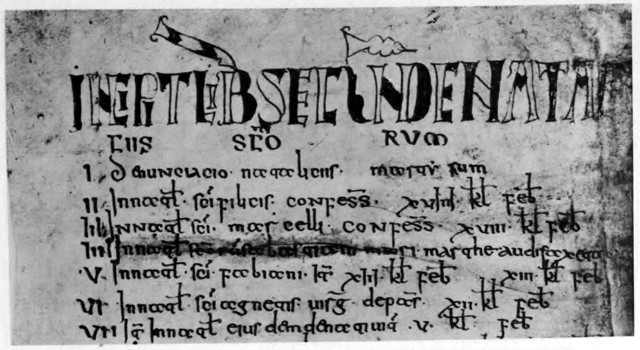 INCIPIT LIB SECUND DE NATALI
CIIS SCO RUM
I. Denunciacio nataliciis martyrum
II. In nat sci felicis confess. xviiii kl feb
III In nat sci marcelli confess. xviii kl feb
IIII In nat mari marthe audifax
V. In nat sci fabiani xiii kl feb xiii kl feb
VI In nat sci agnetis virg de pas. xii kl feb
VII It In nat eius dem de v. kl feb